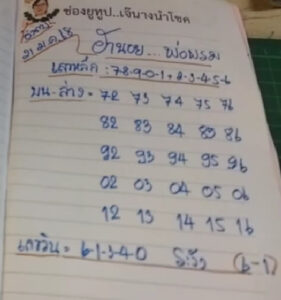 ช่องยูทูป..เจ๊นางนำโชค
อำนอย... พ่อพรม
เลขหลัก : 7-8-9-0-1 + 2-3-4-5-6
บน-ล่าง = 72 73 74 75 76
82 83 84 85 86
92 93 94 95 96
02 03 04 05 06
12 13 14 15 16
เลขวิน = 6-1-3-4-0 ระวัง (6-1)